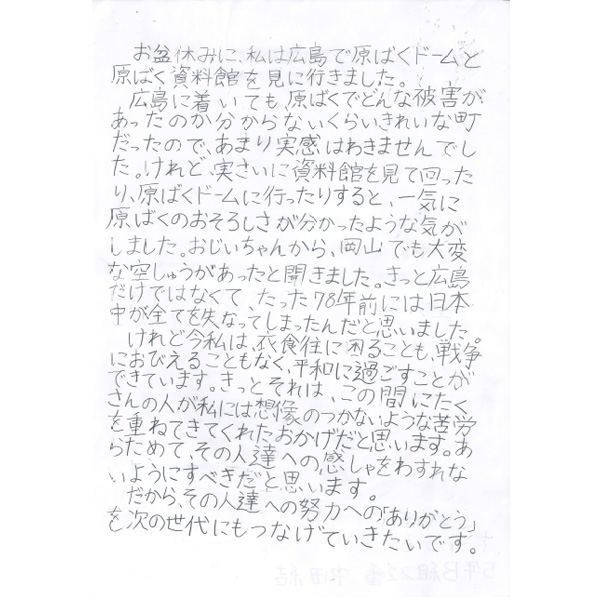 お盆休みに、私は広島で原ばくドームと
原ばく資料館を見に行きました。
広島に着いても、原ばくでどんな被害が
あったのか分からないくらいきれいな町
だったので、あまり実感はわきませんでし
た。けれど、実さいに資料館を見て回った
り、原ばくドームに行ったりすると、一気に
原ばくのおそろしさが分かったような気が
しました。おじいちゃんから、岡山でも大変
な空しゅうがあったと聞きました。きっと広島
だけではなくて たった78年前には日本
中が全てを失なってしまったんだと思いました。
けれど今私は、衣食住に困ることも、戦争
におびえることもなく、平和に過ごすことが
できています。きっとそれは、この間にたく
さんの人が私には想像のつかないような苦労
を重ねてきてくれたおかげだと思います。あ
らためて、その人達への感しゃをわすれな
いようにすべきだと思います。
だから、その人達への努力への「ありがとう」
を次の世代にもつなげていきたいです。